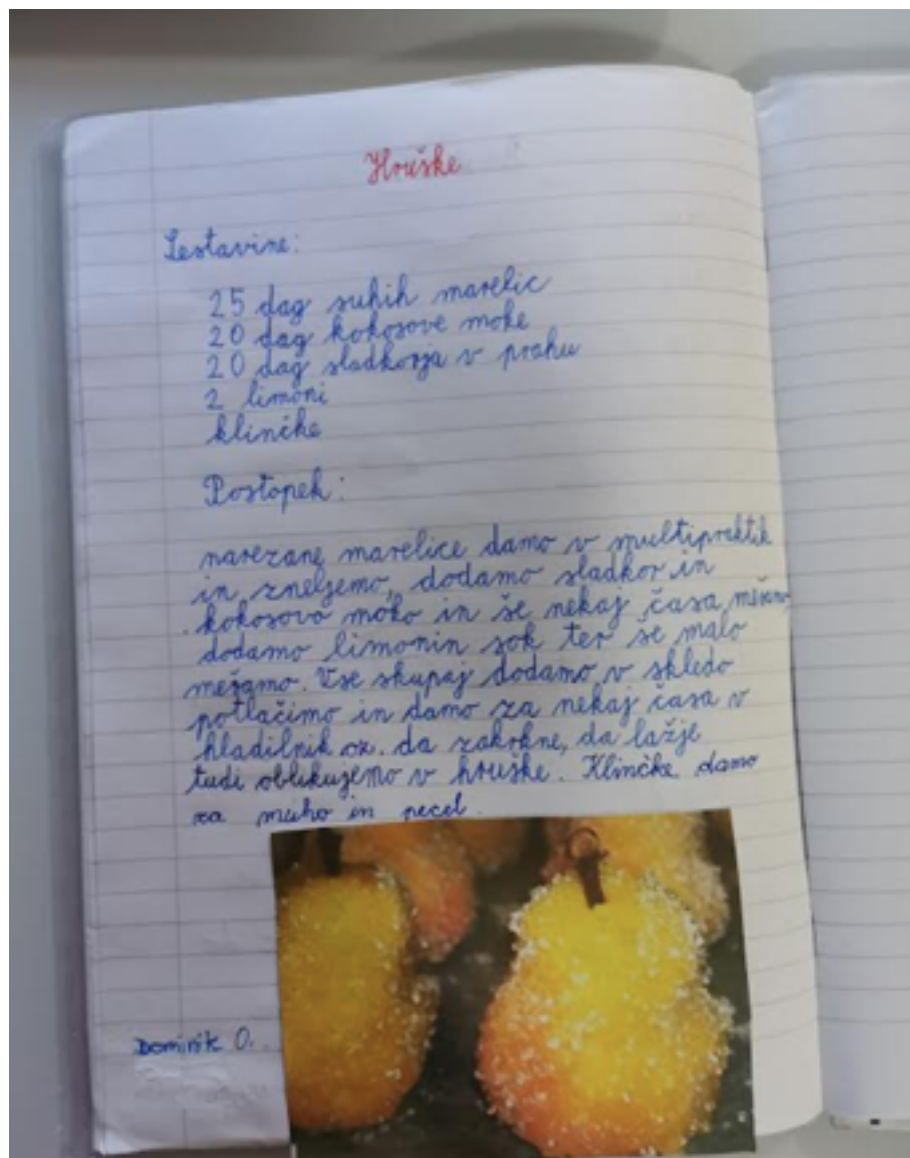 Hruške
Sestavine:
25 dag suhih marelic
20 dag kokosove moke
20 dag sladkorja v prahu
2 limoni
klinčke
Postopek:
narezane marelice damo v multipraktik
in zmeljemo, dodamo sladkor in
kokosovo moko in še nekaj časa mešamo,
dodamo limonin sok ter še malo
mešamo. Vse skupaj dodamo v skledo
potlačimo in damo za nekaj časa v
hladilnik oz. da zakrkne, da lažje
tudi oblikujemo v hruške. Klinčke damo
za muho in pecel.
Dominik O.